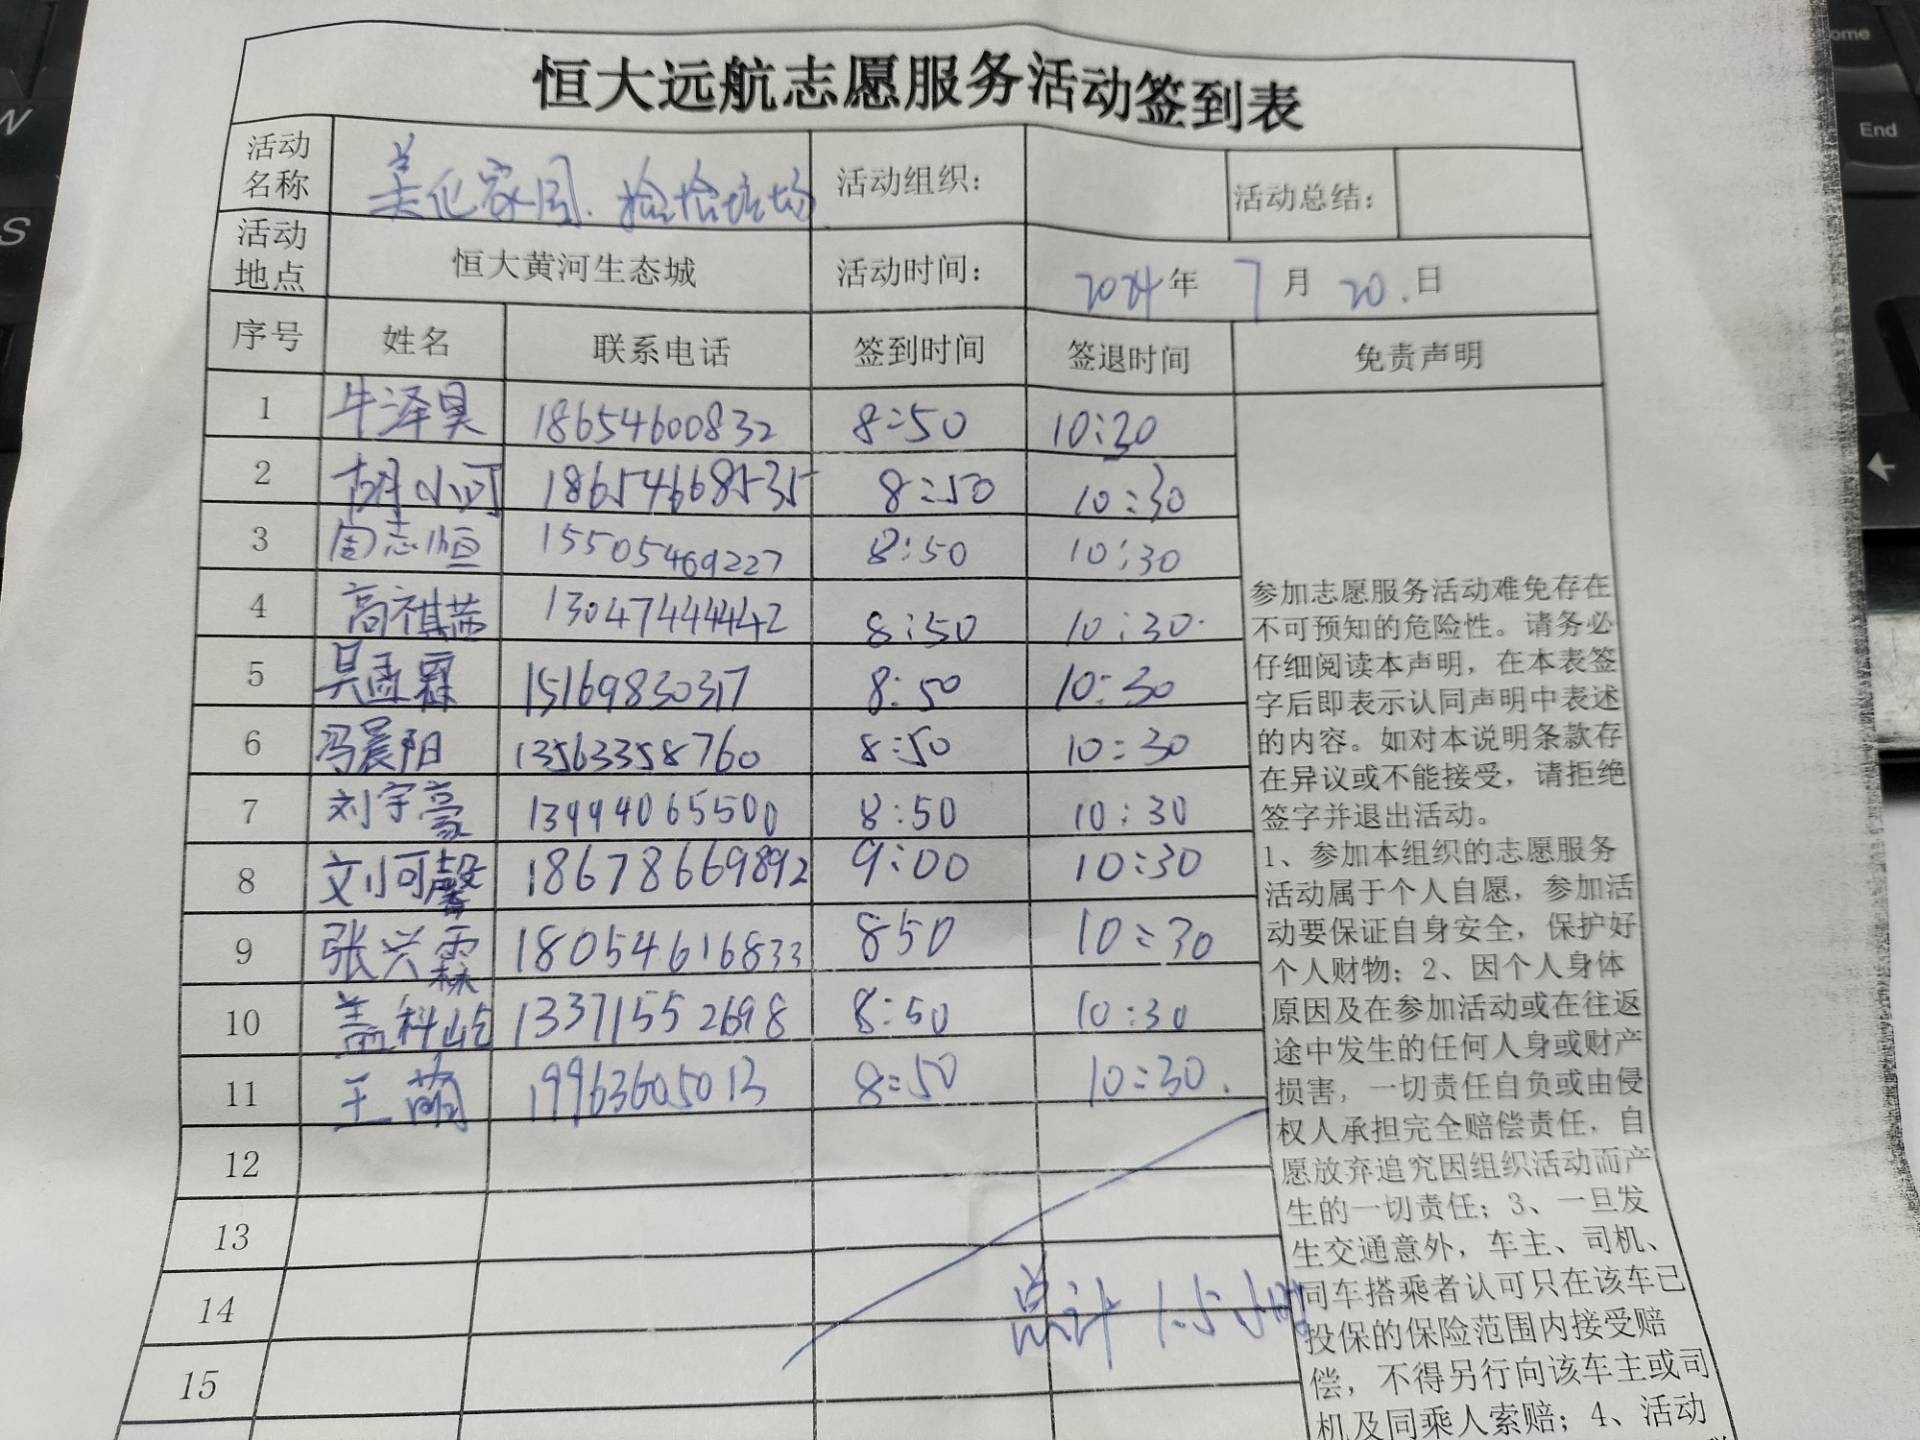 恒大远航志愿服务活动签到表
活动名称 美化家园. 捡拾垃圾 活动组织： 活动总结：
活动地点 恒大黄河生态城 活动时间： 2024年 7月 20.日
序号 姓名 联系电话 签到时间 签退时间 免责声明
1 牛泽昊 18654600832 8:50 10:30
2 胡小可 18654668535 8:50 10:30
3 周志恒 15505469227 8:50 10:30
4 高祺茜 13047444442 8:50 10:30
5 吴孟霖 15169830317 8:50 10:30
6 冯晨阳 13563358760 8:50 10:30
7 刘宇豪 13994065500 8:50 10:30
8 文小可馨 18678669892 9:00 10:30
9 张兴霖 18054616833 850 10:30
10 盖科屹 13371552698 8:50 10:30
11 王萌 19963605013 8:50 10:30.
12
13
14
15
总计 1.5小时
参加志愿服务活动难免存在
不可预知的危险性。请务必
仔细阅读本声明，在本表签
字后即表示认同声明中表述
的内容。如对本说明条款存
在异议或不能接受，请拒绝
签字并退出活动。
1、参加本组织的志愿服务
活动属于个人自愿，参加活
动要保证自身安全，保护好
个人财物；2、因个人身体
原因及在参加活动或在往返
途中发生的任何人身或财产
损害，一切责任自负或由侵
权人承担完全赔偿责任，自
愿放弃追究因组织活动而产
生的一切责任；3、一旦发
生交通意外，车主、司机、
同车搭乘者认可只在该车已
投保的保险范围内接受赔
偿，不得另行向该车主或司
机及同乘人索赔；4、活动
End